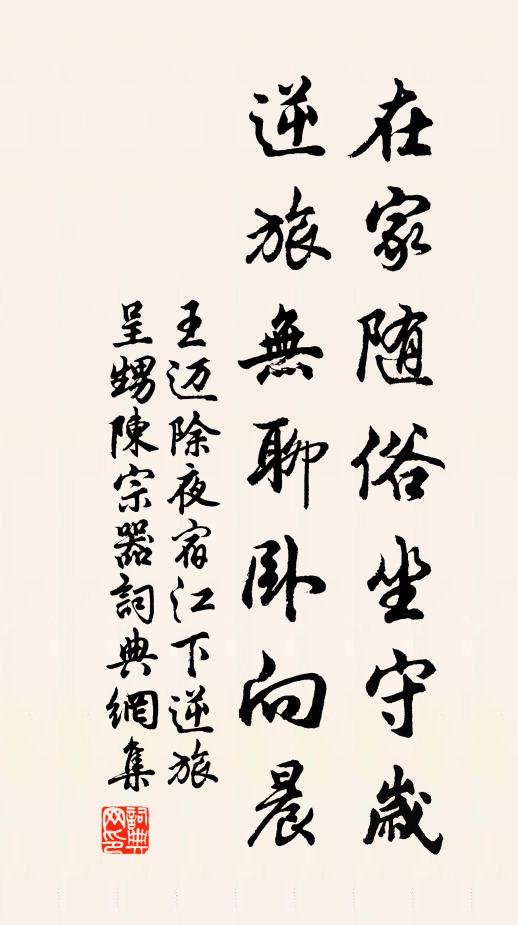 在家随俗坐守歲
逆旅無聊卧向晨
王迈除夜宿江下逆旅
呈甥陳宗器詞典網集
詞典網印